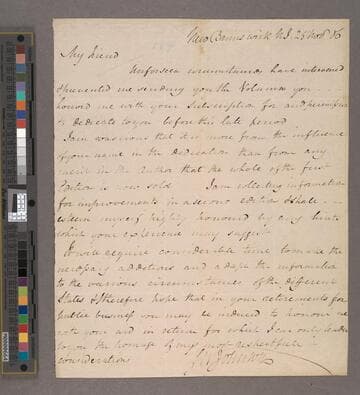 New Brunswick N.J. 25 Nov 06
My friend
Unforseen circumstances have intervened
& prevented me sending you the Volumes you
honord me with your Subscription for and permission
to dedicate to you before this late period
I am conscious that it is more from the influence
of your name in the dedication than from any
merit in the Author that the whole of the first
Edition is now sold I am collecting information
for improvements in a second edition & shall
esteem myself highly honoured by any hints
which your experience may suggest
It will require considerable time to make the
necessary additions and adapt the information
to the various circumstances of the different
States & therefore hope that in your retirement from
public business you may be induced to honour me
with your and in return for which I can only tender
to you the homage of my most respectful
considerations
S W Johnson